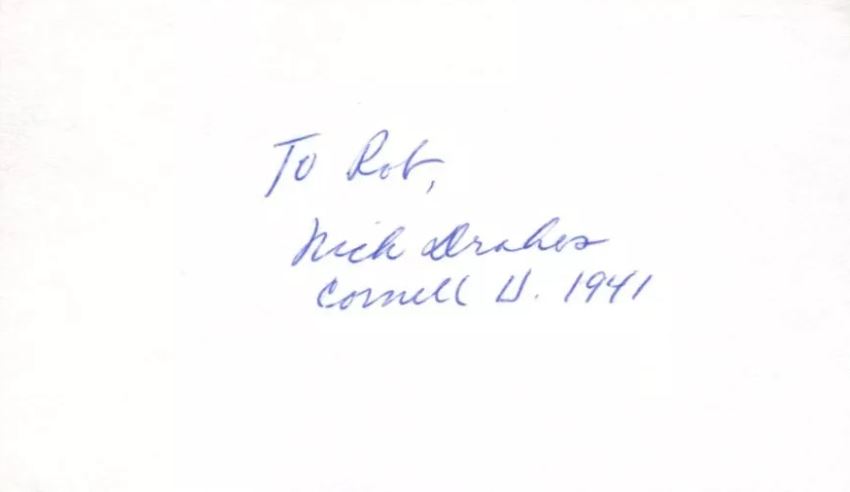 To Rob,
Nick Drahos
Cornell U. 1941